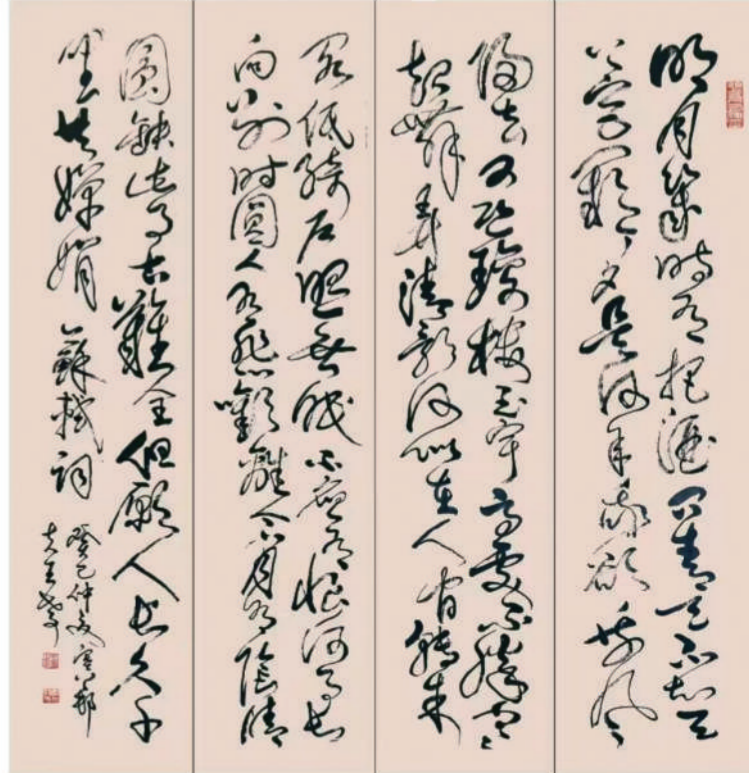 明月幾時有把酒問青天不知天
上宮闕今夕是何年我欲乘風
歸去又恐瓊樓玉宇高處不勝寒
起舞弄清影何似在人間轉朱
閣低綺戶照無眠不應有恨何事長
向別時圓人有悲歡離合月有陰晴
圓缺此事古難全但願人長久千
里共嬋娟 蘇軾詞
癸巳仲夏